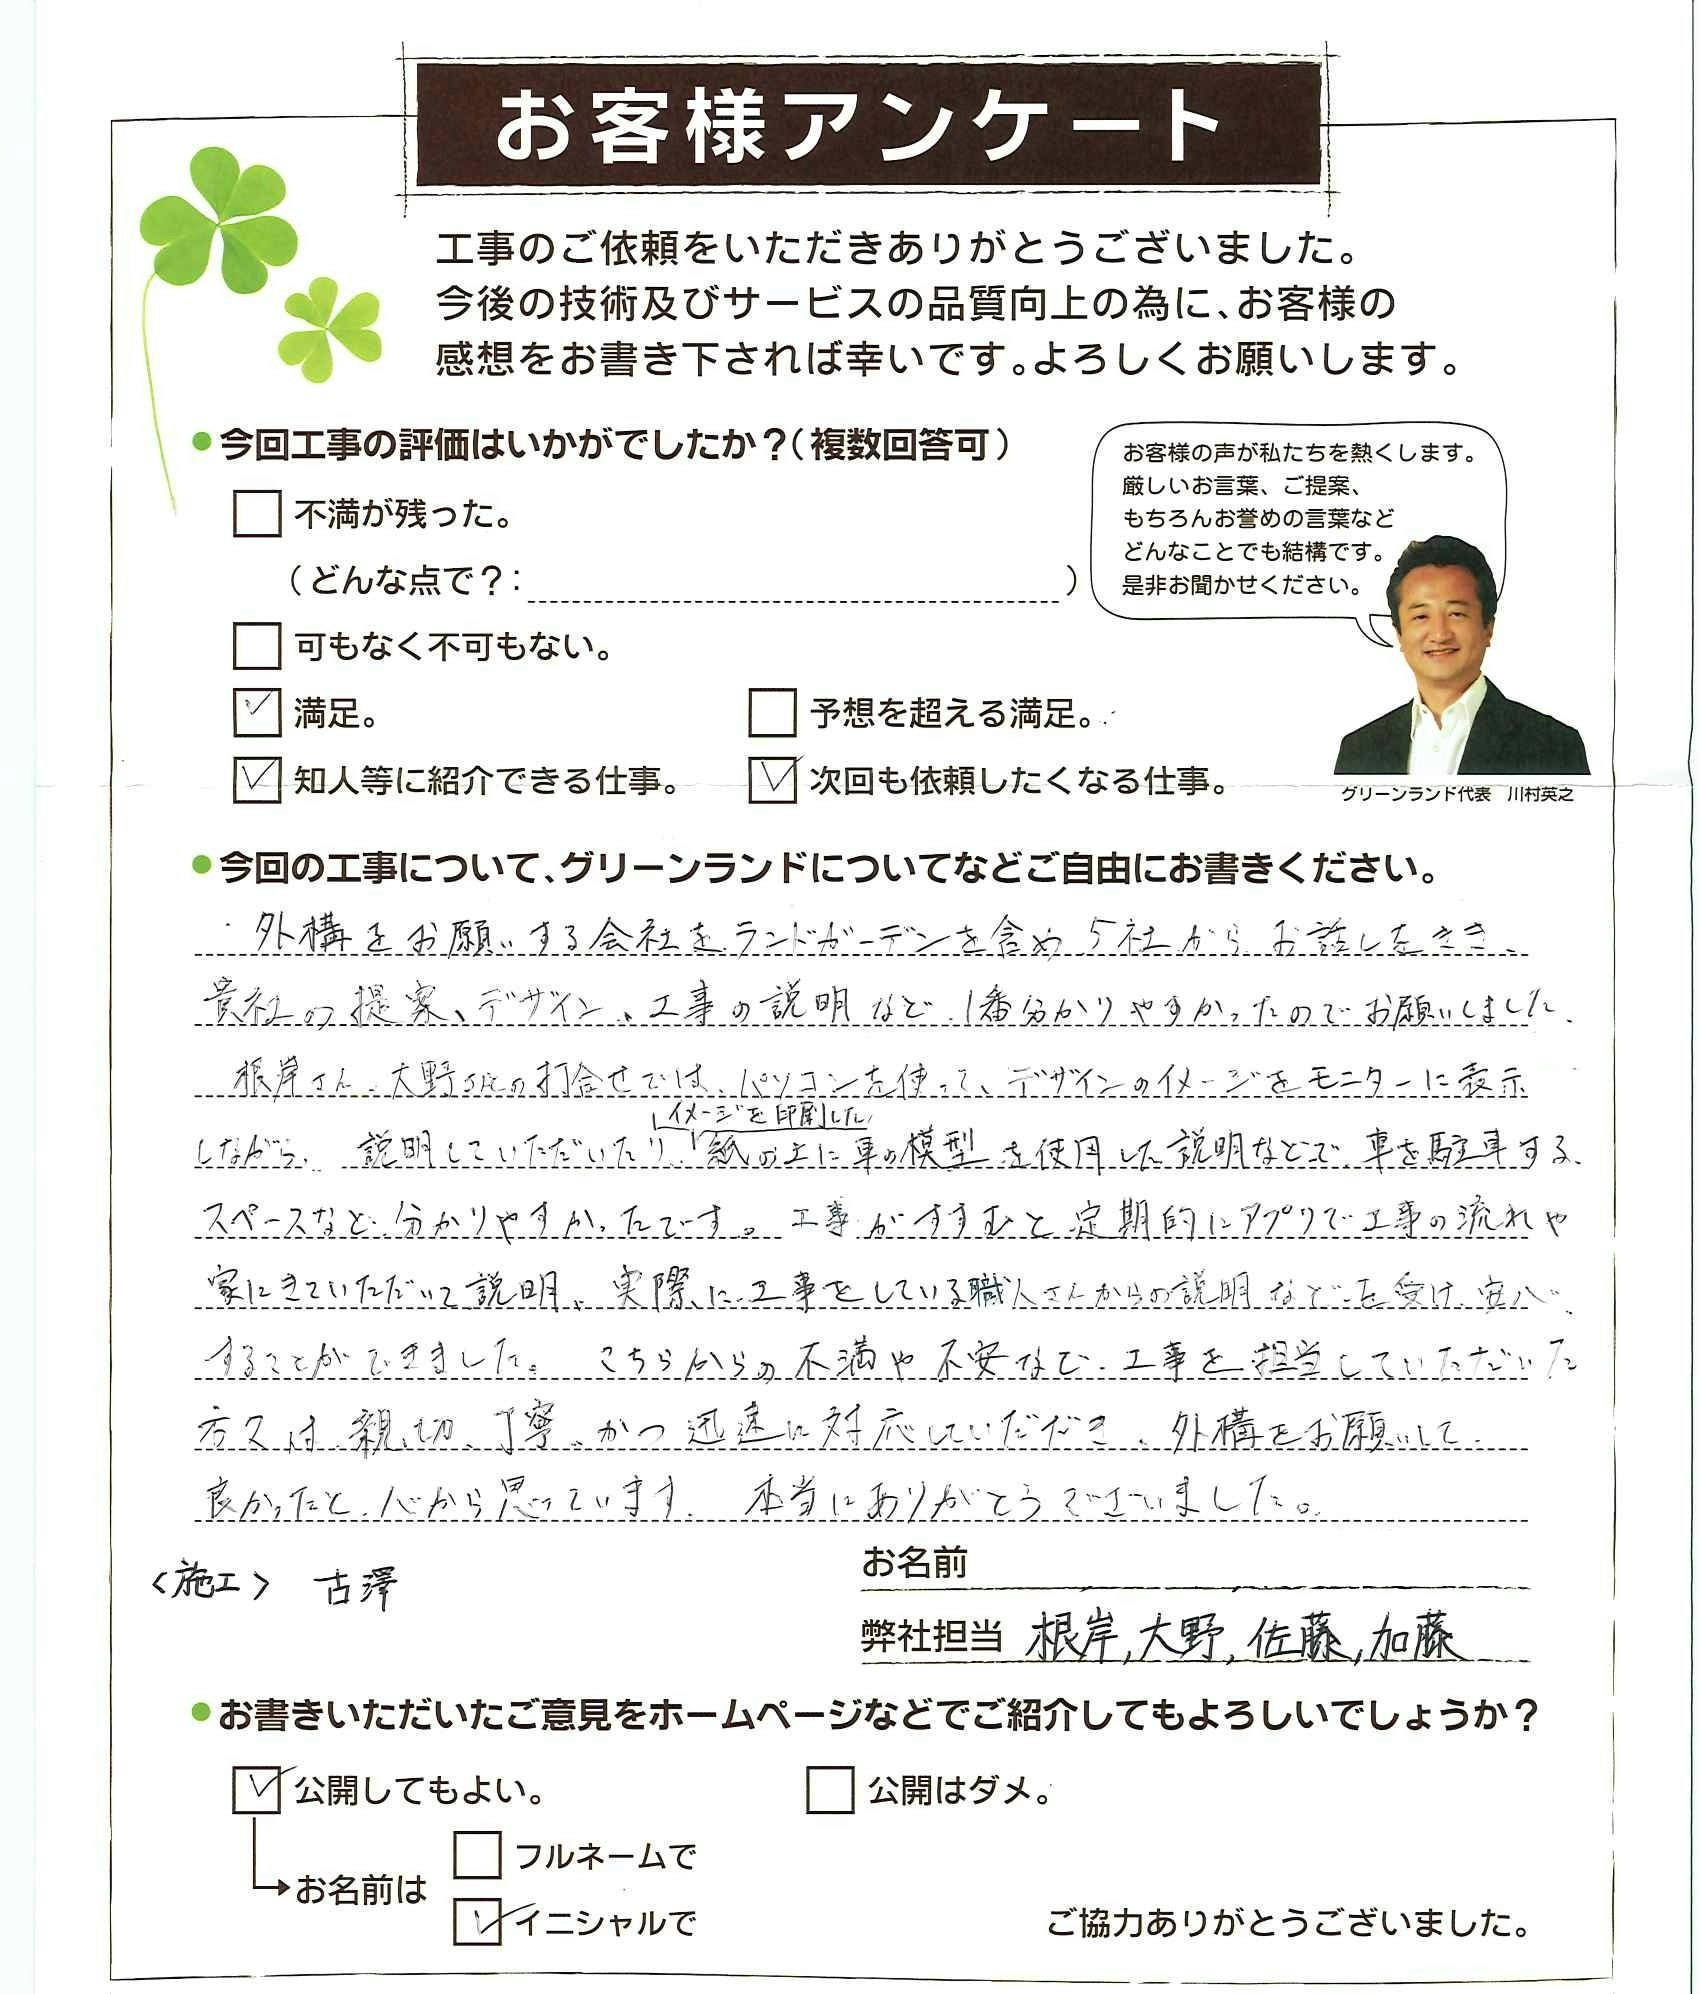 お客様アンケート
工事のご依頼をいただきありがとうございました。
今後の技術及びサービスの品質向上の為に、お客様の
感想をお書き下されば幸いです。よろしくお願いします。
●今回工事の評価はいかがでしたか？（複数回答可）
お客様の声が私たちを熱くします。
厳しいお言葉、ご提案、
もちろんお誉めの言葉など
どんなことでも結構です。
是非お聞かせください。
不満が残った。
（どんな点で？： ）
可もなく不可もない。
満足。 予想を超える満足。
知人等に紹介できる仕事。 次回も依頼したくなる仕事。
グリーンランド代表 川村英之
●今回の工事について、グリーンランドについてなどご自由にお書きください。
外構をお願いする会社をランドガーデンを含め5社からお話しをきき、
貴社の提案、デザイン、工事の説明など、1番分かりやすかったのでお願いしました。
根岸さん、大野さんの打合せでは、パソコンを使って、デザインのイメージをモニターに表示
イメージを印刷した
しながら、説明していただいたり、紙の上に車の模型を使用した説明などで、車を駐車する
スペースなど、分かりやすかったです。工事がすすむと定期的にアプリで工事の流れや
家にきていただいて説明、実際に工事をしている職人さんからの説明などを受け、安心
することができました。こちらからの不満や不安など、工事を担当していただいた
方々は、親切、丁寧、かつ迅速に対応していだだき、外構をお願いして
良かったと、心から思っています。本当にありがとうございました。
<施工> 古澤
お名前
弊社担当 根岸,大野,佐藤,加藤
●お書きいただいたご意見をホームページなどでご紹介してもよろしいでしょうか？
公開してもよい。 公開はダメ。
フルネームで
お名前は
イニシャルで
ご協力ありがとうございました。